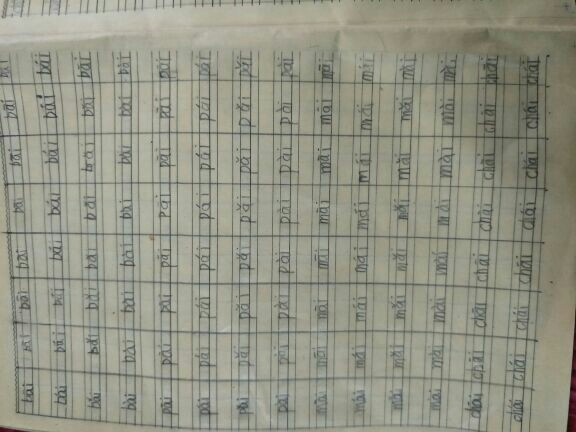 bāi bái bǎi bài pāi pái pǎi pài māi mái mǎi mài chāi chái
bāi bái bǎi bài pāi pái pǎi pài māi mái mǎi mài chāi chái
bāi bái bǎi bài pāi pái pǎi pài māi mái mǎi mài chāi chái
bāi bái bǎi bài pāi pái pǎi pài māi mái mǎi mài chāi chái
bāi bái bǎi bài pāi pái pǎi pài māi mái mǎi mài chāi chái
bāi bái bǎi bài pāi pái pǎi pài māi mái mǎi mài chāi chái
bāi bái bǎi bài pāi pái pǎi pài māi mái mǎi mài chāi chái
bāi bái bǎi bài pāi pái pǎi pài māi mái mǎi mài chāi chái